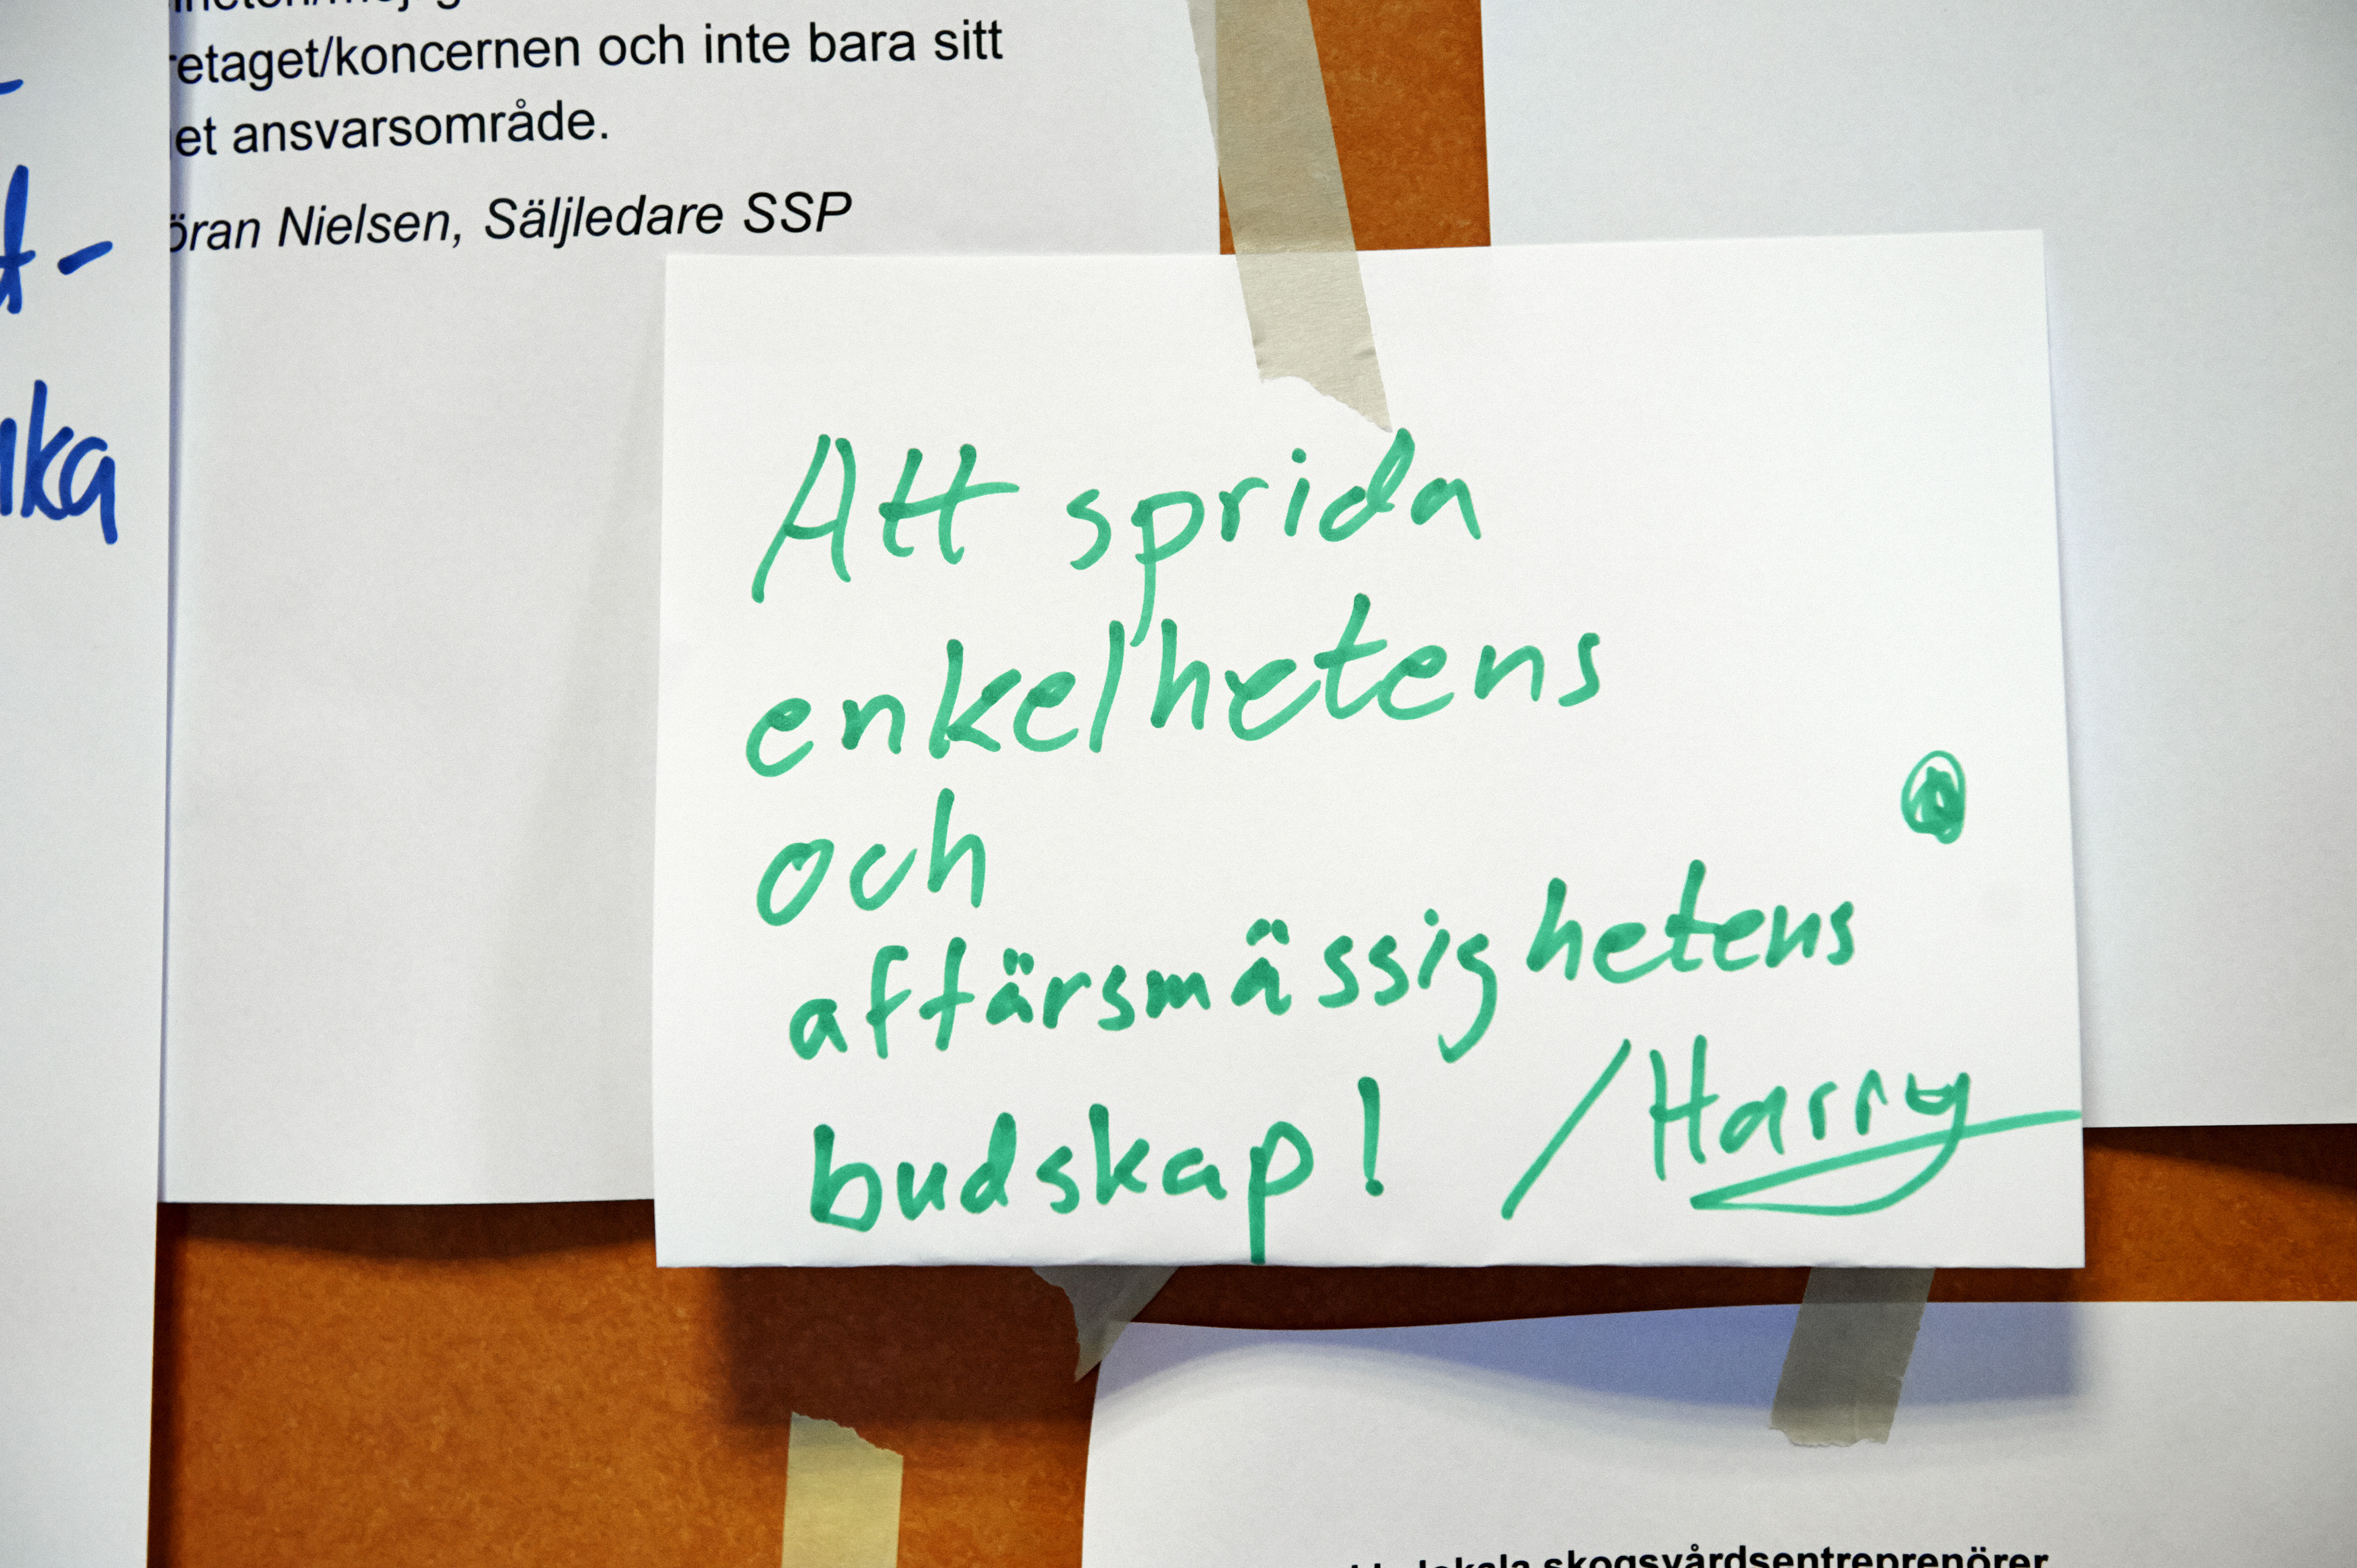 retaget/koncernen och inte bara sitt
et ansvarsområde.
öran Nielsen, Säljledare SSP
Att sprida
enkelhetens
och
affärsmässighetens
budskap! /Harry
lokala skogsvårdsentreprenörer